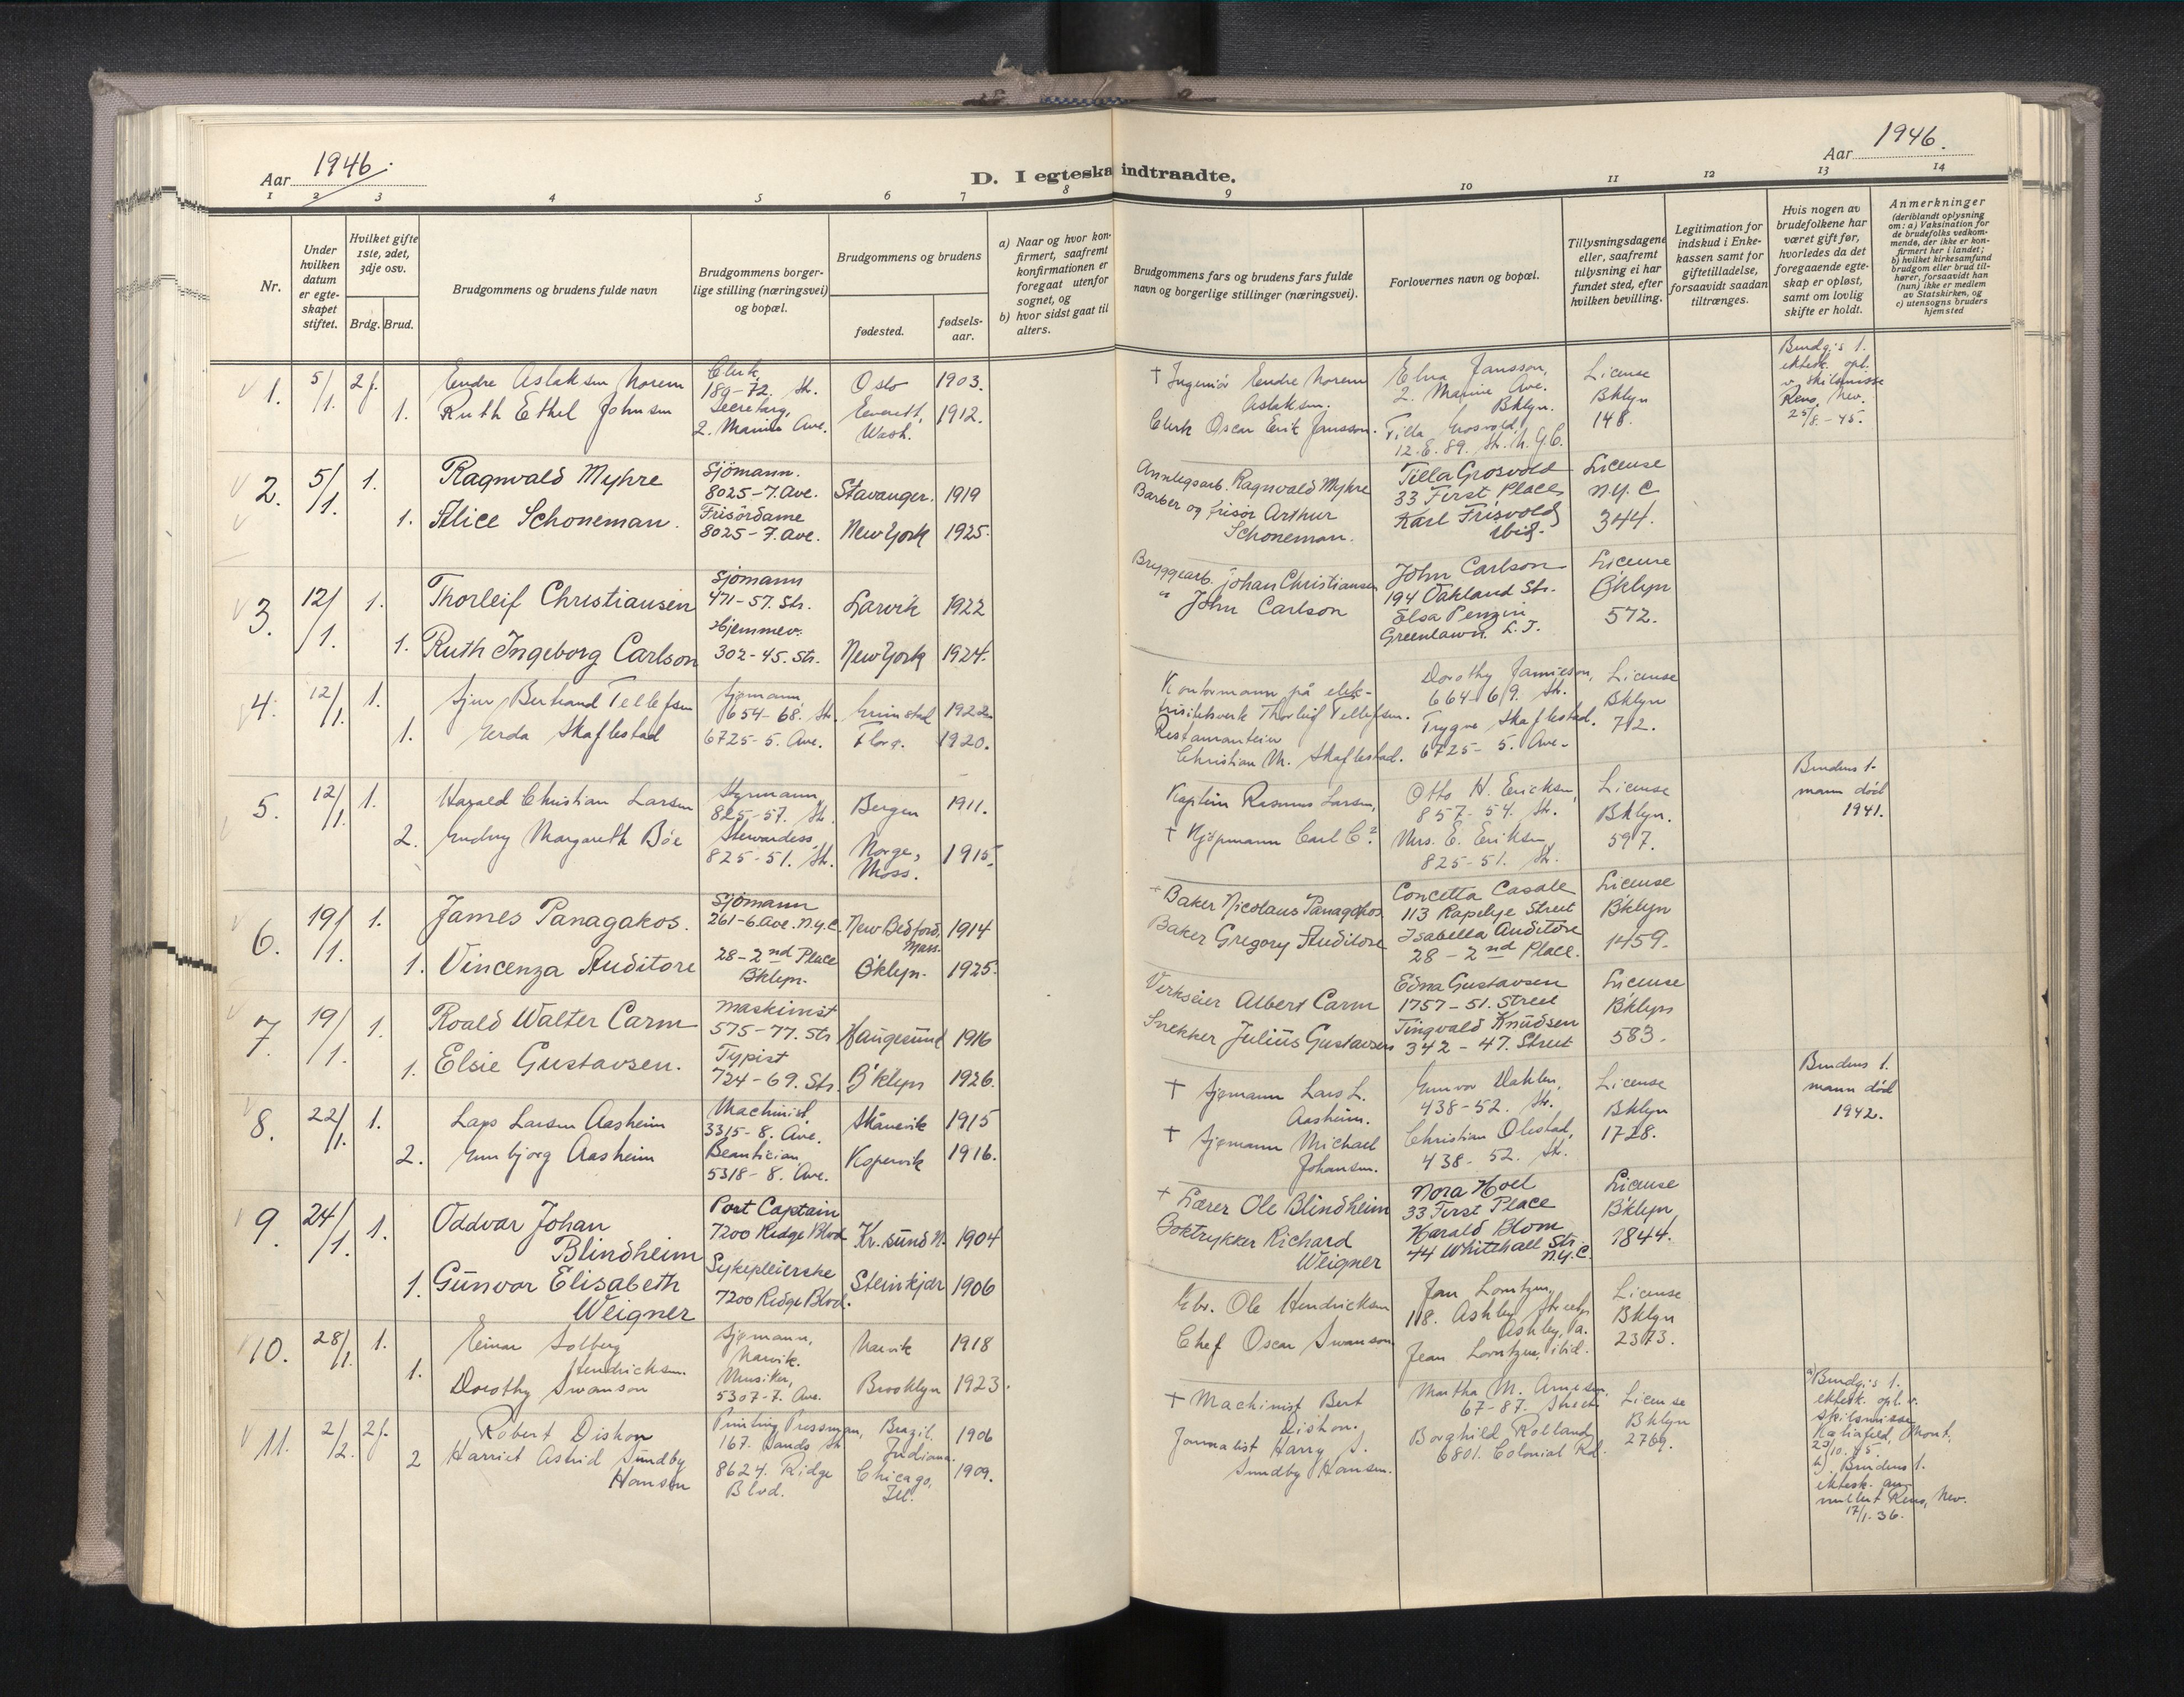 Aar 1946.
D. I egteska indtraadte.
Aar 1946.
1 2 3 4 5 6 7 8 9 10 11 12 13 14
Nr.
Under
hvilken
datum
er egte-
skapet
stiftet.
Hvilket gifte
1ste, 2det,
3dje osv.
Brdg. Brud.
Brudgommens og brudens fulde navn
Brudgommens borger-
lige stilling (næringsvei)
og bopæl.
Brudgommens og brudens
fødested.
fødsels-
aar.
a) Naar og hvor kon-
firmert, saafremt
konfirmationen er
foregaat utenfor
sognet, og
b) hvor sidst gaat til
alters.
Brudgommens fars og brudens fars fulde
navn og borgerlige stillinger (næringsvei).
Forlovernes navn og bopæl.
Tillysningsdagene
eller, saafremt
tillysning ei har
fundet sted, efter
hvilken bevilling.
Legitimation for
indskud i Enke-
kassen samt for
giftetilladelse,
forsaavidt saadan
tiltrænges.
Hvis nogen av
brudefolkene har
været gift før,
hvorledes da det
foregaaende egte-
skap er opløst,
samt om lovlig
skifte er holdt.
Anmerkninger
(deriblandt oplysning
om: a) Vaksination for
de brudefolks vedkom-
mende, der ikke er kon-
firmert her i landet;
b) hvilket kirkesamfund
brudgom eller brud til-
hører, forsaavidt han
(hun) ikke er medlem
av Statskirken, og
c) utensogns bruders
hjemsted
1. 5/1. 2 f.
Endre Aslaksen Norem
Clerk,
189-72. Str.
Oslo 1903.
1. Ruth Ethel Johnsen
Secretary,
2. Marine Ave.
Everett,
Wash.
1912.
† Ingeniør Endre Norem
Aslaksen.
Clerk Oscar Erik Jansson.
Elna Jansson,
2. Marine Ave.
Bklyn.
Tilla Grosvold,
12. E. 89. Str. N.Y.C.
License
Bklyn
148.
Brudg.s 1.
ektesk. opl.
v. skilsmisse
Reno, Nev.
25/8.-45.
2. 5/1. 1.
Ragnvald Myhre
Sjömann.
8025-7. Ave.
Stavanger. 1919
1. Alice Schoneman.
Frisördame
8025-7. Ave.
New York 1925.
Anleggsarb. Ragnvald Myhre
Barber og frisör Arthur
Schoneman.
Tilla Grosvold
33 First Place
Karl Frisvold
ibid.
License
N.Y.C
344.
3. 12/1. 1.
Thorleif Christiansen
Sjömann
471-57. Str.
Larvik 1922
1. Ruth Ingeborg Carlson
Hjemmev.
302-45. Str.
New York 1924.
Bryggearb. Johan Christiansen
" John Carlson
John Carlson
194 Oakland Str.
Elsa
Greenlawn L.I.
License
B'klyn
572.
4. 12/1. 1.
Bertrand Tellefsen
Sjømann,
654-68. Str.
Grimstad 1922.
1. Gerda Skaflestad
6725-5. Ave.
Florø. 1920.
Kontormann på elek-
trisitetsverk Thorleif Tellefsen.
Christian M. Skaflestad.
Dorothy Jamieson,
664-69. Str.
Trygve Skaflestad.
6725-5. Ave.
License
Bklyn
712.
5. 12/1. 1.
Harald Christian Larsen
Styrmann,
825-57. Str.
Bergen 1911.
2. Margareth Bøe
Stewardess,
825-51. Str.
Norge,
Moss.
1915.
Kaptein Rasmus Larsen,
† Kjøpmann Carl C.?
Otto H. Ericksen,
857-54. Str.
Mrs. E. Eriksen,
825-51. Str.
License
Bklyn.
597.
Brudens 1.
mann død
1941.
6. 19/1. 1.
James Panagakos.
Sjömann
261-6. Ave. N.Y.C.
New Bedford,
Mass.
1914
1. Vincenza Auditore
28-2nd Place
B'klyn.
B'klyn. 1925.
† Baker Nicolaus Panagakos
Baker Gregory Auditore
Concetta Casale
113 Rapelye Street
Isabella Auditore
28-2nd Place.
License
B'klyn
1459.
7. 19/1. 1.
Roald Walter Carm
Maskinist
575-77. Str
Haugesund 1916
1. Elsie Gustavsen.
Typist
724-69. Str.
B'klyn 1926.
Verkseier Albert Carm
Snekker Julius Gustavsen
Edna Gustavsen
1757-51. Street
Tingvald Knudsen
342-47. Street
License
B'klyn
583.
8. 22/1. 1.
Lars Larsen Aasheim
Machinist,
3315-8. Ave.
Skånevik 1915
2. Gunbjørg Aasheim
Beautician
5318-8. Ave.
Kopervik 1916.
† Sjømann Lars L.
Aasheim.
† Sjømann Michael
Johansen.
Gunvor Dahlen,
438-52. Str.
Christian Olestad,
438-52. Str.
License
Bklyn
1728.
Brudens 1.
mann død
1942.
9. 24/1. 1.
Oddvar Johan
Blindheim
Port Captain
7200 Ridge Blvd
Kr.sund N. 1904
1. Gunvor Elisabeth
Weigner
Sykepleierske
7200 Ridge Blvd.
Steinkjær 1906
† Lærer Ole Blindheim
Boktrykker Richard
Weigner
Nora Hoel
33 First Place
Harald Blom
44 Whitehall Str.
N.Y.C.
License
B'klyn
1844.
10. 28/1. 1.
Einar Solberg
Hendricksen.
Sjømann,
Narvik.
Narvik 1918
1. Dorothy Swanson
Musiker,
5307-7. Ave.
Brooklyn 1923.
Ole Hendricksen
Chef Oscar Swanson
118. Ashby Street,
Ashby,
ibid.
License
Bklyn
2373.
11. 2/2. 2 f.
Robert Dishon
Printing Pressman,
167. Sands Str.
Brazil,
Indiana.
1906
2 Harriet Astrid Sundby
Hansen
8624. Ridge
Blvd.
Chicago,
Ill.
1909.
† Machinist Bert
Dishon.
Journalist Harry S.
Sundby Hansen.
Martha M. Arnesen,
67-87. Street
Borghild Rolland
6801. Colonial Rd.
License
Bklyn
2769.
a) Brudg.s 1.
ektesk. opl. v.
skilsmisse
Mont.
23/10.45.
b) Brudens 1.
ektesk. an-
nullert Reno, Nev.
17/1.36.